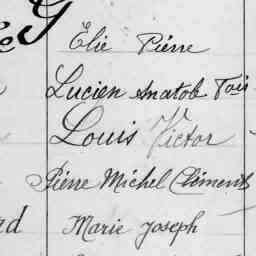 G
Élie Pierre
Lucien Anatole
Louis Victor
Pierre Michel Clément
rd Marie Joseph